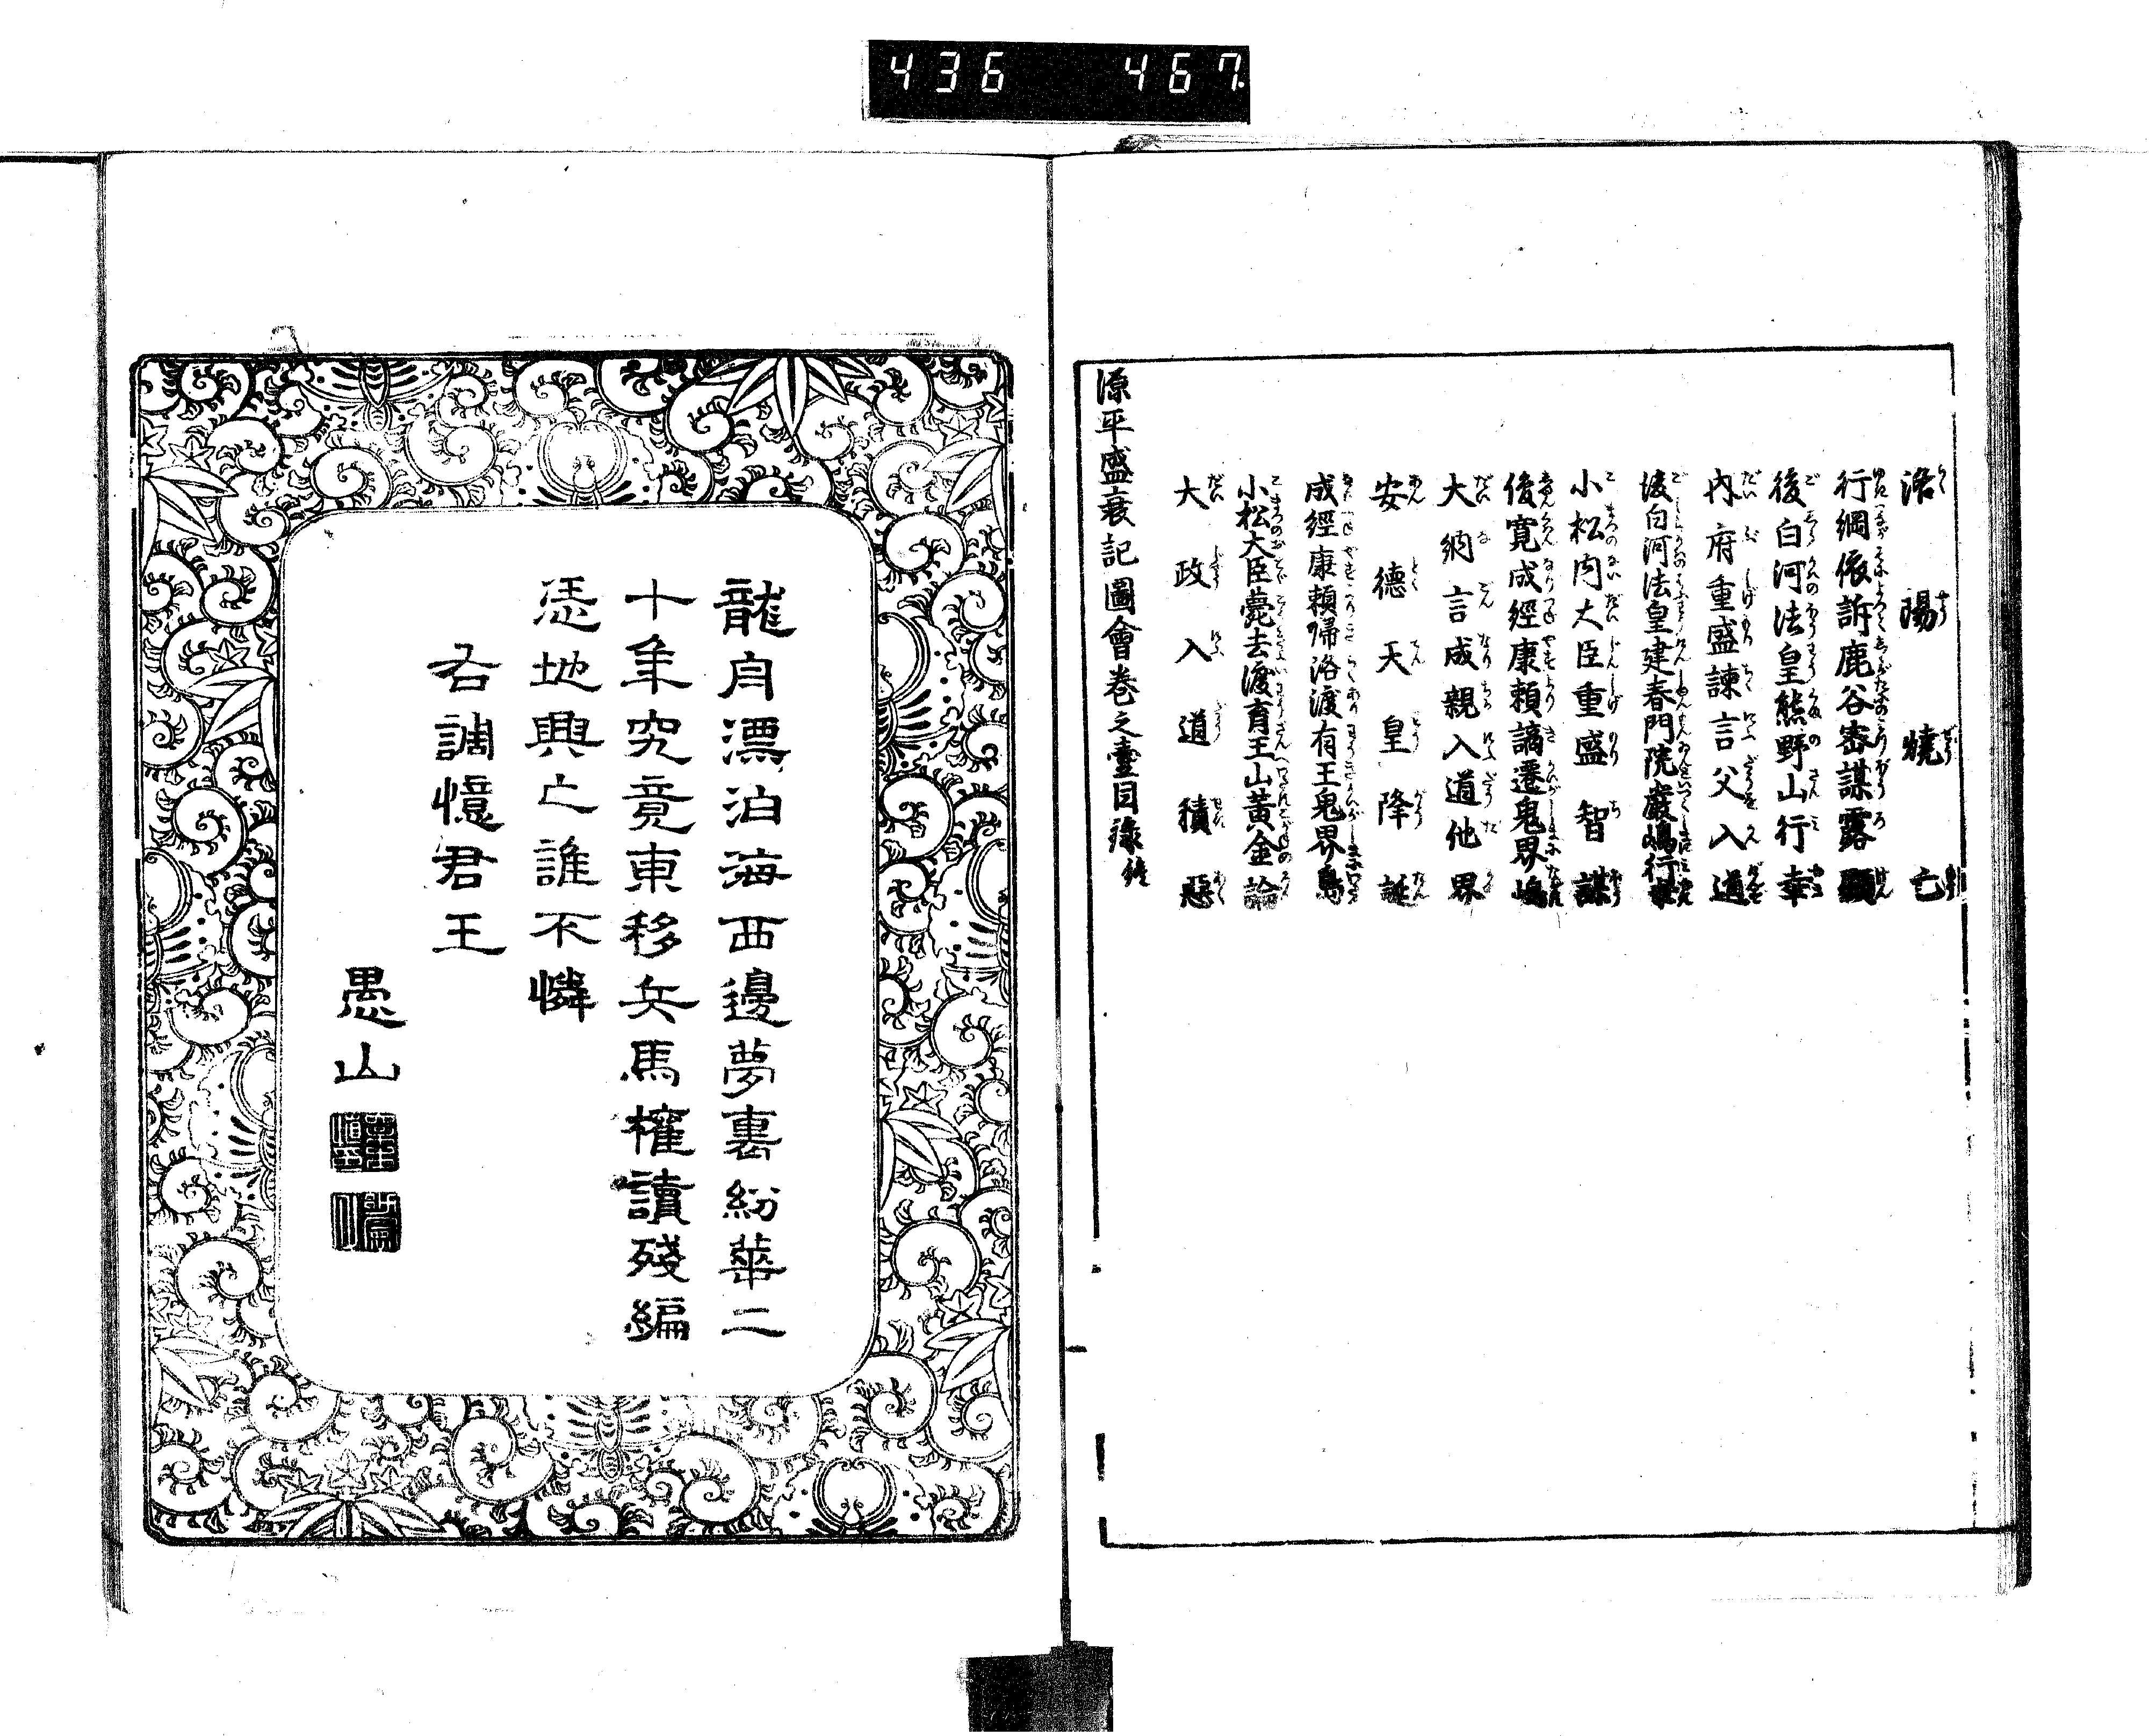 436 467
洛陽燒亡
行綱依訴鹿谷密謀露顕
後白河法皇熊野山行幸
内府重盛諫言父入道
後白河法皇建春門院嚴嶋行幸
小松内大臣重盛智謀
俊寛成經康頼謫遷鬼界嶋
大納言成親入道他界
安德天皇降誕
成經康頼帰洛渡有王鬼界島
小松大臣薨去渡育王山黃金論
大政入道積惡
源平盛衰記圖會卷之壹目录終
龍舟漂泊海西邊夢裏紛華二
十年究竟東移兵馬權讀殘編
恁地興亡誰不憐
右調憶君王
愚山